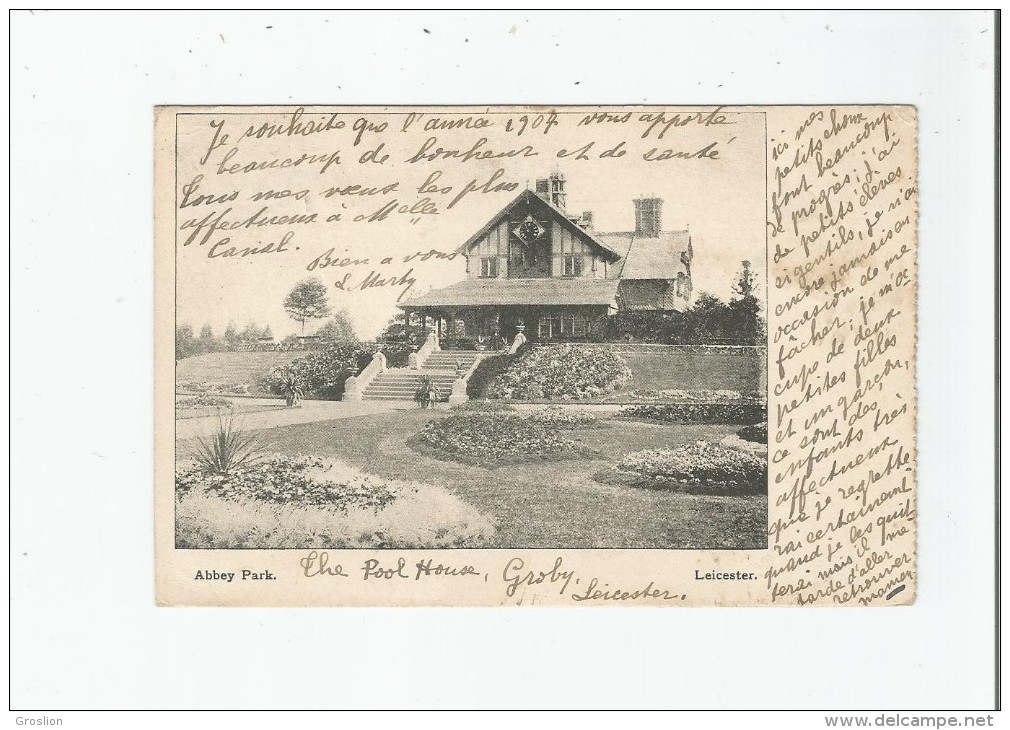 Je souhaite que l'année 1907 vous apporte
beaucoup de bonheur et de santé
Tous mes vœux les plus
affectueux à Melle
Carial.
Bien a vous
L Marty
ici mes
petits choux
font beaucoup
de progrès; j'ai
de petits élèves
si gentils, je n'ai
encore jamais eu
occasion de me
fâcher; je m'oc
cupe de deux
petites filles
et un garçon,
ce sont des
enfants très
affectueux
que je regrette
rai certainement
quand je les quit
terai mais il me
tarde d'aller
retrouver
maman
Abbey Park. The Pool House, Groby, Leicester.
Leicester.
Groslion
www.delcampe.net